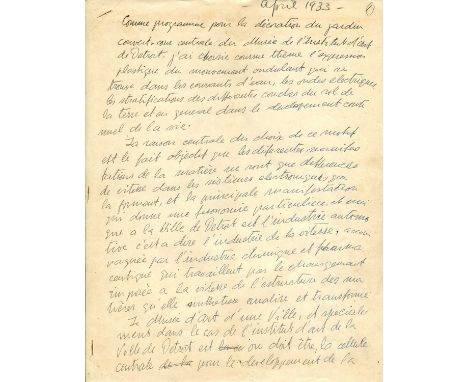 - April 1933 -
Comme programme pour la décoration du jardin
couvert, ou centrale du Musée de l'
de Detroit. j'ai choisie comme thème l'expression
plastique du mouvement ondulant qui se
trouve dans les courants d'eau, les ondes electriques
les stratifications des differentes couches du sol de
la terre et en general dans le devlopement conti
nuel de la vie.
La raison centrale du choix de ce motif
est le fait objectif que les differentes manifes
tations de la matière ne sont que differences
de vitesse dans les sistèmes electroniques qui
la forment, et la principale manifestation
qui donne une fisonomie particulière et uni
que a la Ville de Detroit est l'industrie automo
tive c'est a dire l'industrie de la vitesse, accom
pagnée par l'industrie chimique et pharma
ceutique qui travaillent par le changement
imposée a la vitesse de l'estructure des ma
tières qu'elle analise et transforme
Le Musée d'Art d'une Ville, et speciale
ment dans le cas de l'institut d'art de la
Ville de Detroit est ou doit être, la cellule
centrale pour le developpement de la